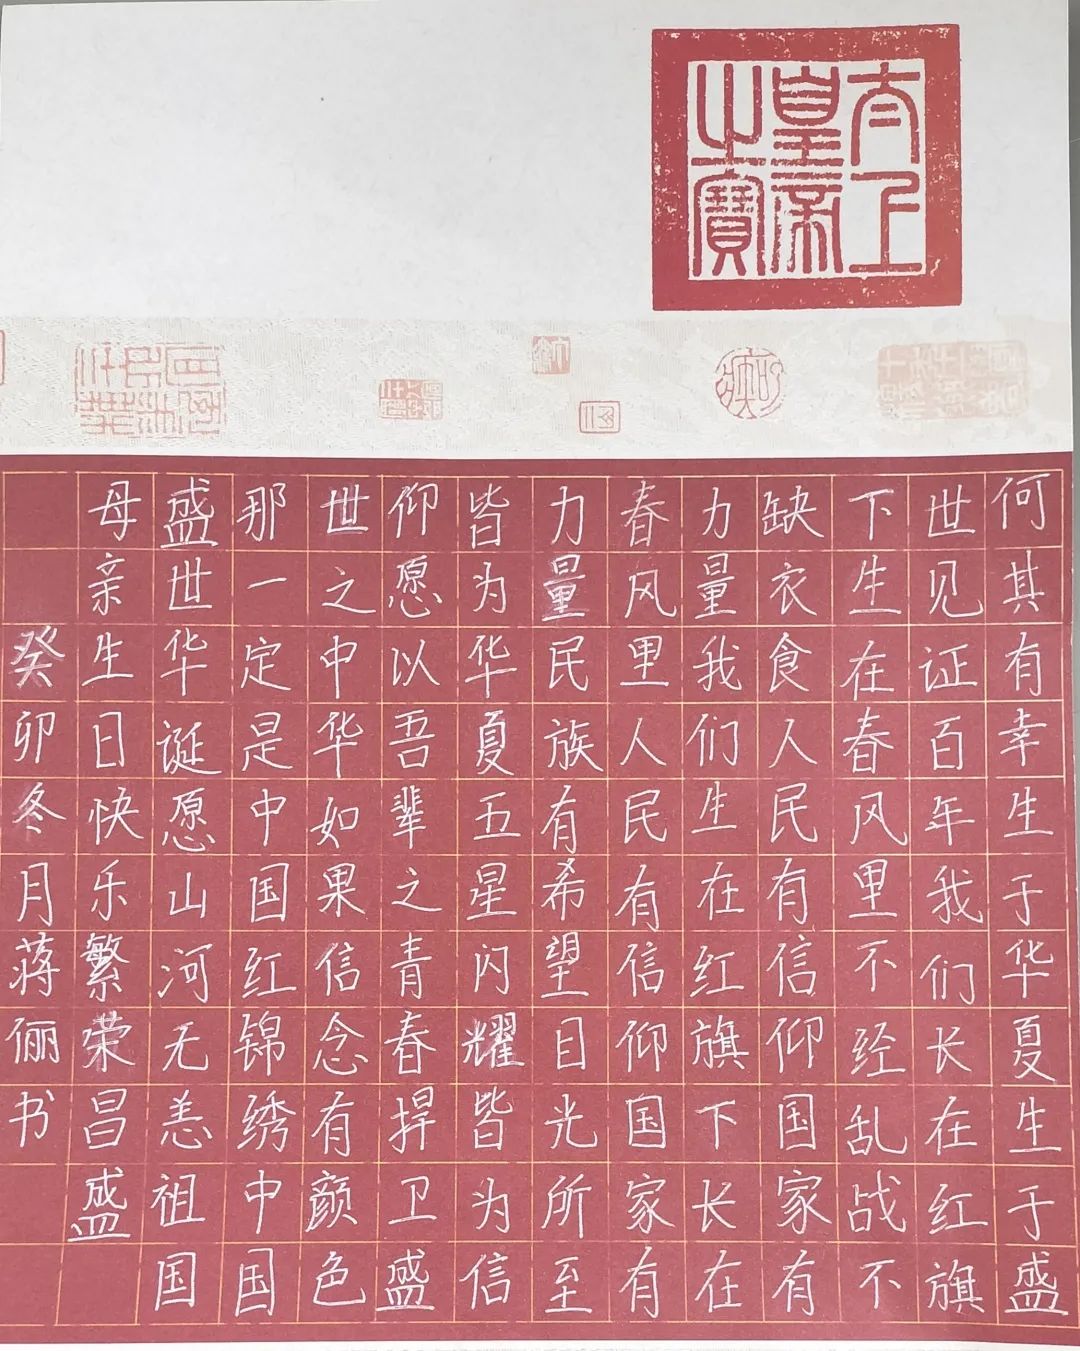 太上
皇帝
之寶
何其有幸生于华夏生于盛
世见证百年我们长在红旗
下生在春风里不经乱战不
缺衣食人民有信仰国家有
力量我们生在红旗下长在
春风里人民有信仰国家有
力量民族有希望目光所至
皆为华夏五星闪耀皆为信
仰愿以吾辈之青春捍卫盛
世之中华如果信念有颜色
那一定是中国红锦绣中国
盛世华诞愿山河无恙祖国
母亲生日快乐繁荣昌盛
癸卯冬月蒋俪书